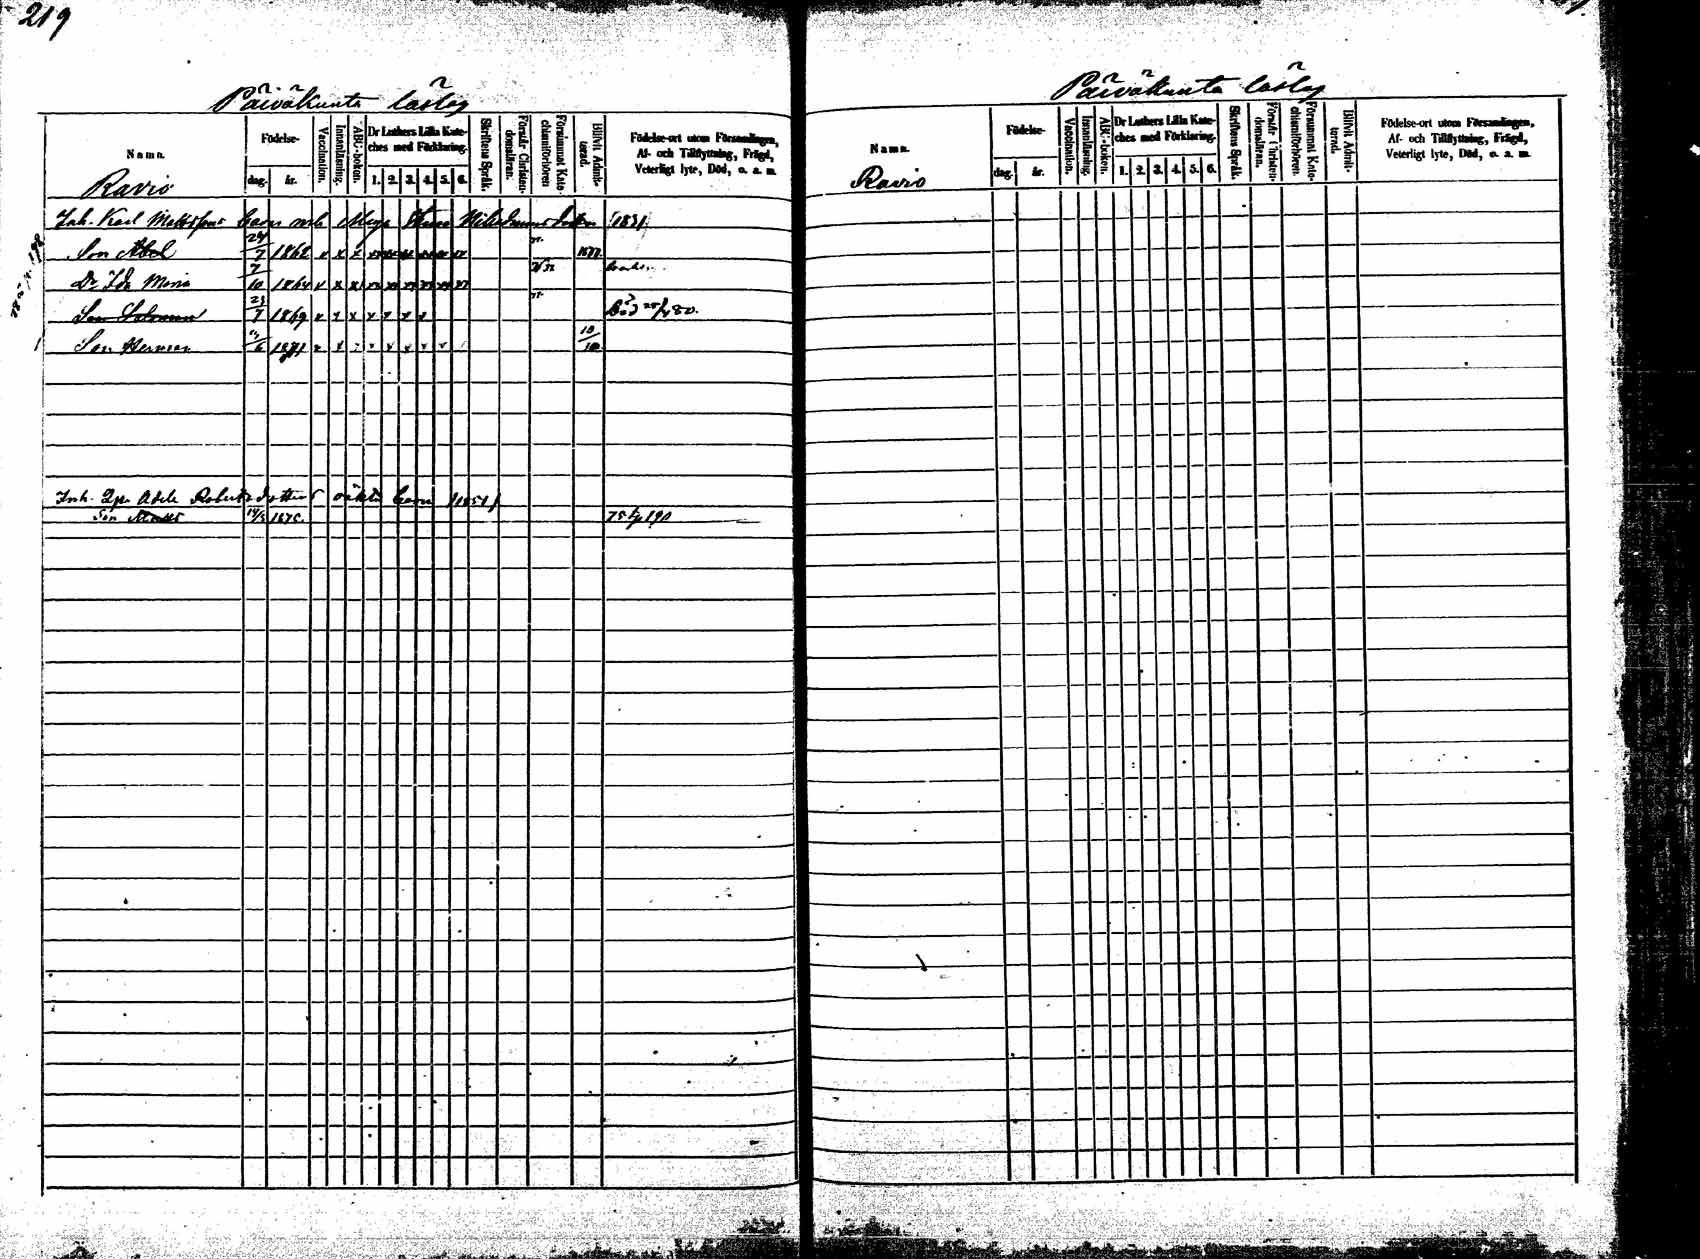 219
Päiväkunta läslag
Namn.
Födelse-
dag.
år.
Vaccination.
Innanläsning.
ABC-boken.
Dr Luthers Lilla Kate-
ches med Förklaring.
1. 2. 3. 4. 5. 6.
Skriftens Språk.
Förstår Christen-
domsläran.
Försummat Kate-
chismiförhören
Blifvit Admit-
terad.
Födelse-ort utom Församlingen,
Af- och Tillflyttning, Frägd,
Veterligt lyte, Död, o. a. m.
Ravio
Inh. Karl Mattsson barn 1831
Son Abel 24/7 1862 v x x
Dr Ida Maria 7/10 1864 v x x
Son Salomon 23/7 1869 v x x x x x x Död 80.
Son Herman 6
10/10
Inh. Adele Roberts dotter oäkta barn 1851
Son 14/5 187
Päiväkunta läslag
Namn.
Födelse-
dag.
år.
Vaccination.
Innanläsning.
ABC-boken.
Dr Luthers Lilla Kate-
ches med Förklaring.
1. 2. 3. 4. 5. 6.
Skriftens Språk.
Förstår Christen-
domsläran.
Försummat Kate-
chismiförhören.
Blifvit Admit-
terad.
Födelse-ort utom Församlingen,
Af- och Tillflyttning, Frägd,
Veterligt lyte, Död, o. a. m.
Ravio